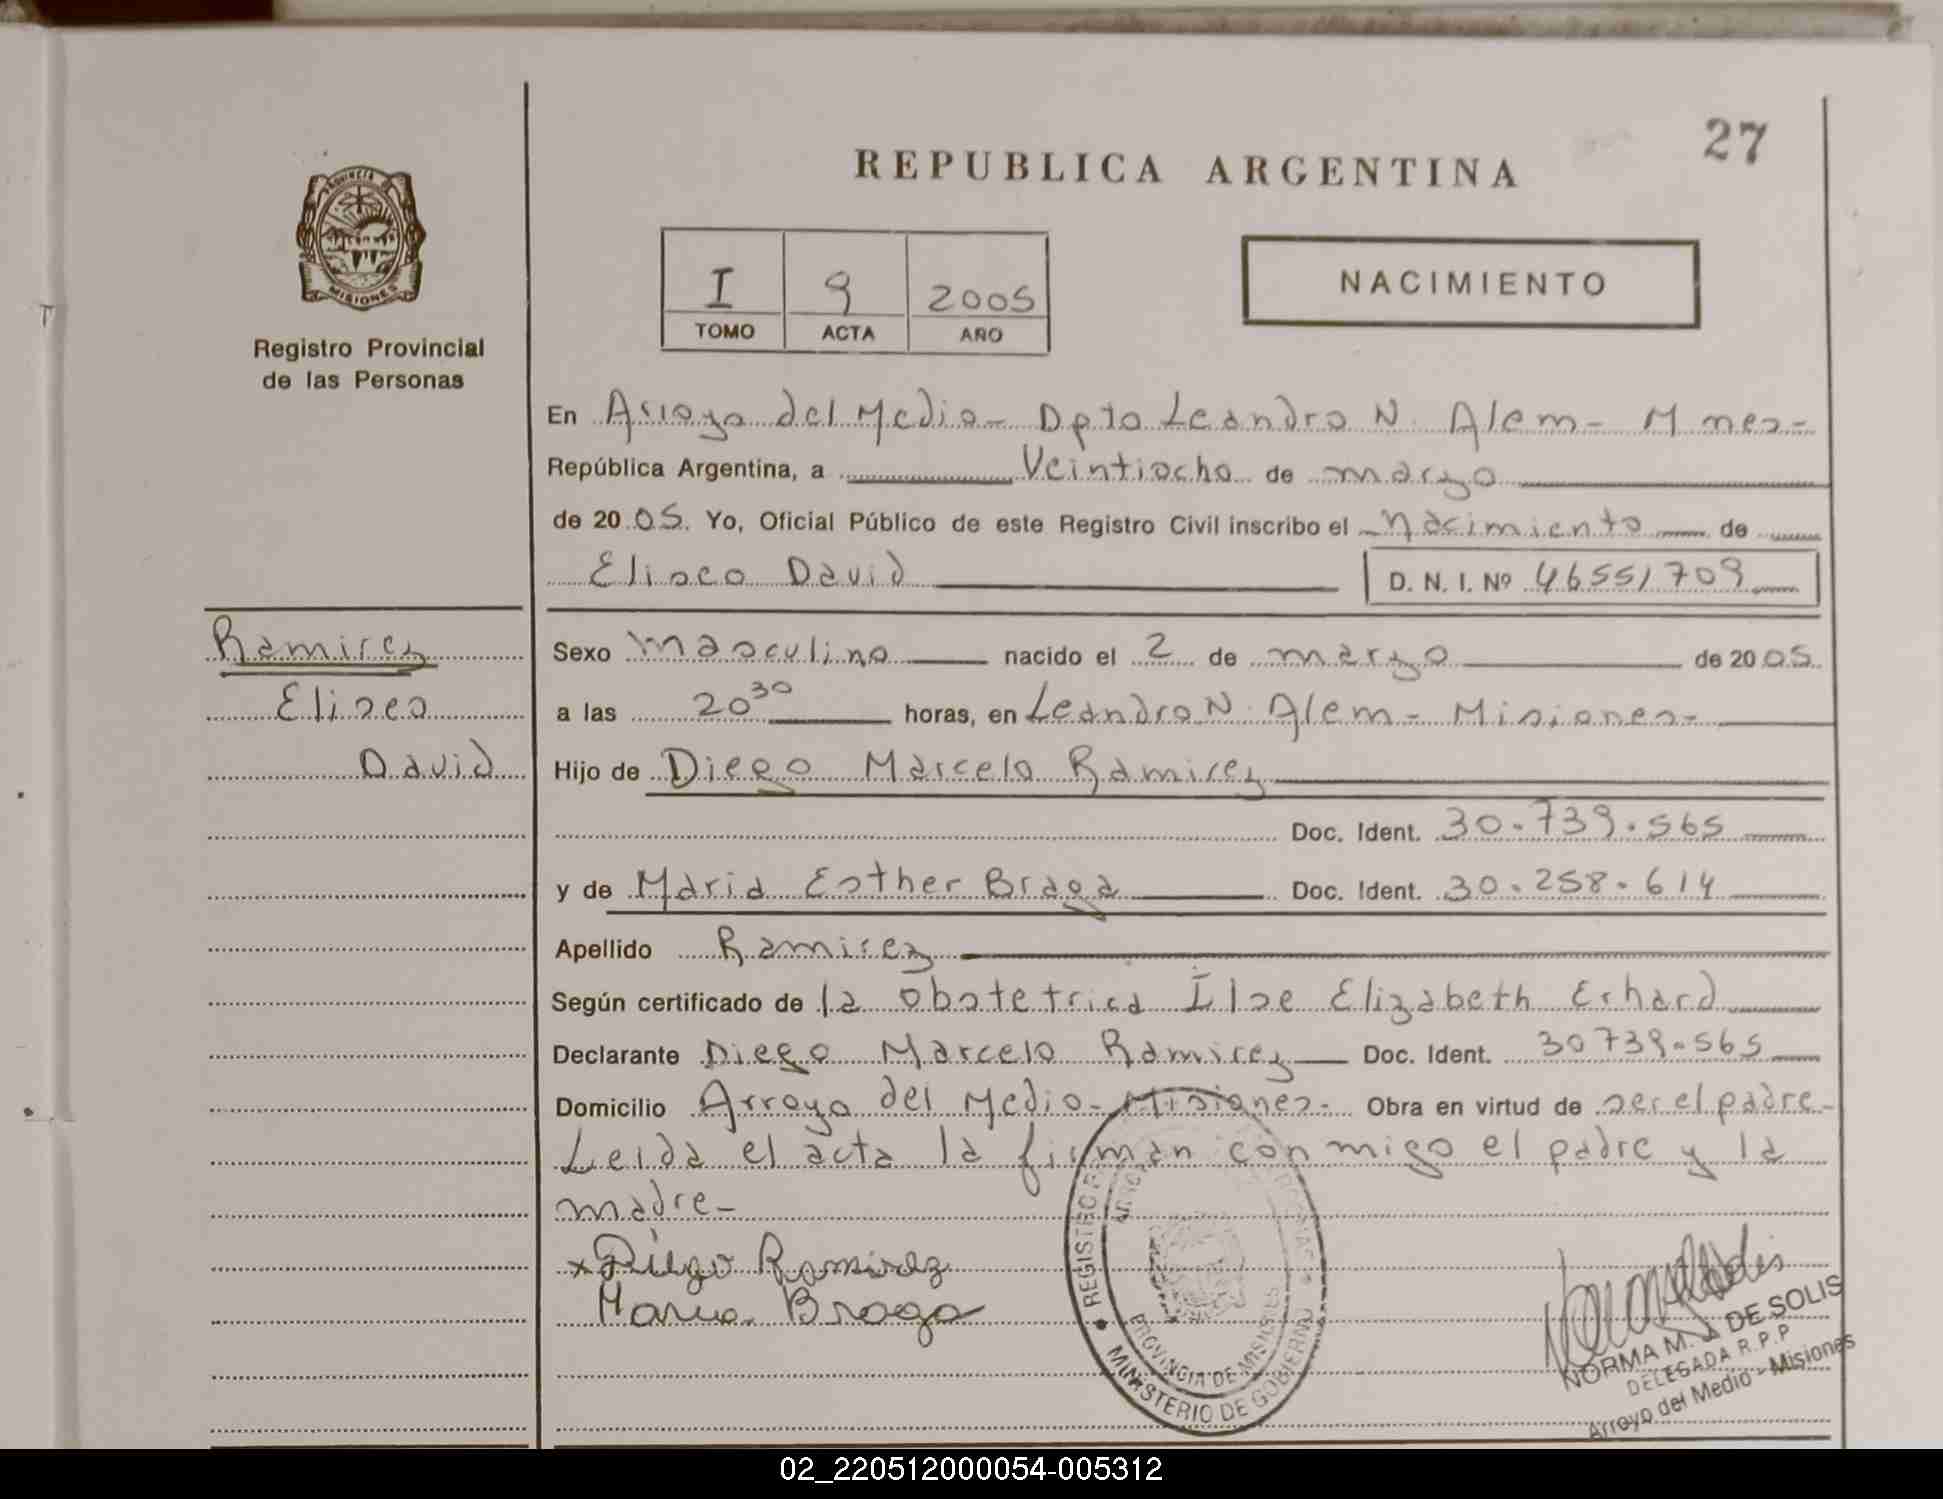 27
REPUBLICA ARGENTINA
PROVINCIA DE
MISIONES
Registro Provincial
de las Personas
I 9 2005
TOMO ACTA AÑO
NACIMIENTO
En Arroyo del Medio- Dpto Leandro N. Alem- Mnes-
República Argentina, a Veintiocho de marzo
de 2005. Yo, Oficial Público de este Registro Civil inscribo el Nacimiento de
Eliseo David D. N. I. Nº 46551709
Ramirez
Eliseo
David
Sexo masculino nacido el 2 de marzo de 2005.
a las 20 30 horas, en Leandro N. Alem- Misiones-
Hijo de Diego Marcelo Ramirez
Doc. Ident. 30.739.565
y de Maria Esther Braga Doc. Ident. 30.258.614
Apellido Ramirez
Según certificado de la obstetrica Ilse Elizabeth Erhard
Declarante Diego Marcelo Ramirez Doc. Ident. 30739.565
Domicilio Arroyo del Medio- Misiones- Obra en virtud de ser el padre-
Leida el acta la firman conmigo el padre y la
madre-
x Diego Ramirez
Maria Braga
REGISTRO
PROVINCIA DE MISIONES
MINISTERIO DE GOBIERNO
NORMA M. DE SOLIS
DELEGADA R.P.P
Arroyo del Medio - Misiones
02_220512000054-005312